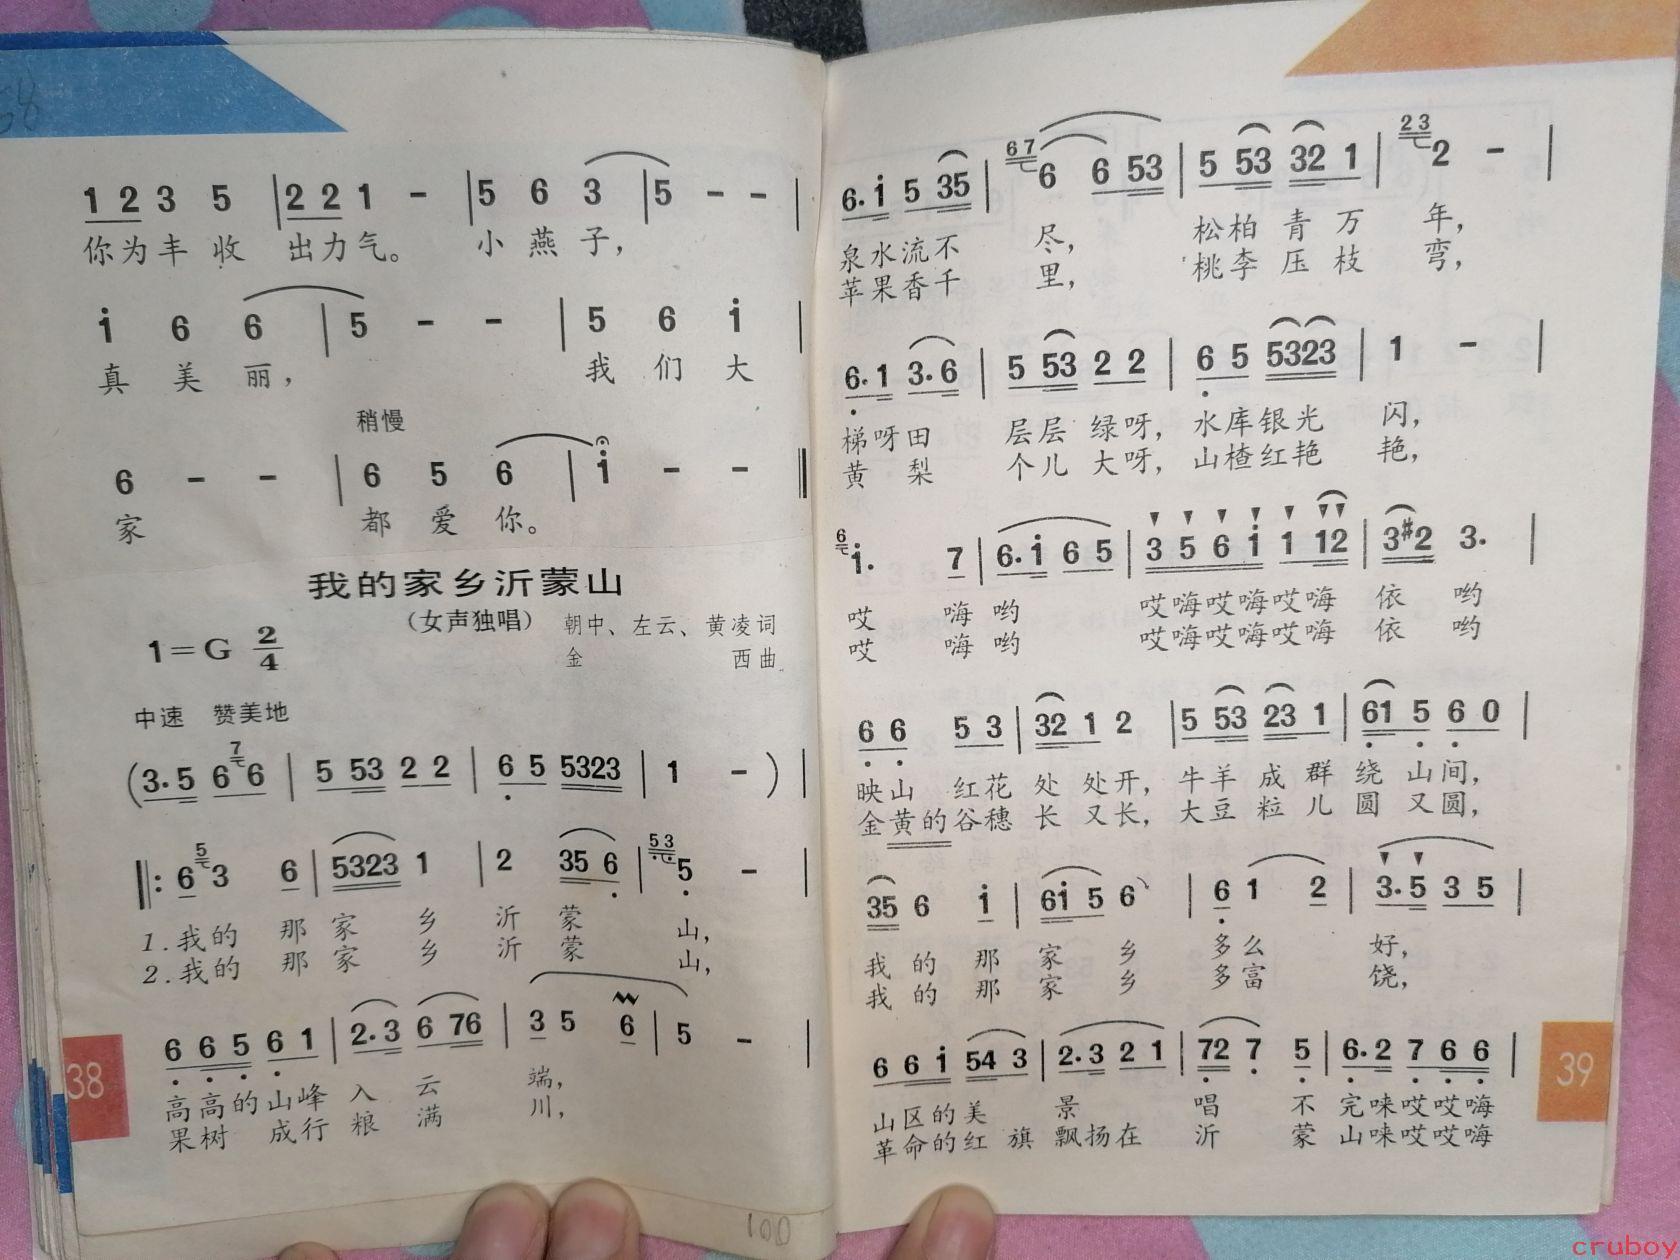 1 2 3 5 | 2 2 1 - | 5 6 3 | 5 - - |
你为丰收 出力气。 小燕子，
i 6 6 | 5 - - | 5 6 i |
真美丽， 我们大
稍慢
6 - - | 6 5 6 | i - - ‖
家 都爱你。
我的家乡沂蒙山
（女声独唱）
朝中、左云、黄凌词
1=G 2/4
金 西曲
中速 赞美地
(3.5 6 7 6 | 5 53 2 2 | 6 5 5323 | 1 - ) |
‖: 6 5 3 6 | 5323 1 | 2 35 6 | 53 5 - |
1.我的 那家 乡 沂蒙 山，
2.我的 那家 乡 沂蒙 山，
6 6 5 6 1 | 2.3 6 76 | 3 5 6 | 5 - |
高高的山峰 入 云 端，
果树 成行 粮 满 川，
38
100
6.i 5 35 | 67 6 6 53 | 5 53 32 1 | 23 2 - |
泉水流不 尽， 松柏青万 年，
苹果香千 里， 桃李压枝 弯，
6.1 3.6 | 5 53 2 2 | 6 5 5323 | 1 - |
梯呀田 层层绿呀，水库银光 闪，
黄 梨 个儿大呀，山楂红艳 艳，
6 i. 7 | 6.i 6 5 | 3 5 6 i 1 12 | 3#2 3. |
哎 嗨哟 哎嗨哎嗨哎嗨 依 哟
哎 嗨哟 哎嗨哎嗨哎嗨 依 哟
6 6 5 3 | 32 1 2 | 5 53 23 1 | 61 5 6 0 |
映山 红花处 处开，牛羊成群绕 山间，
金黄的谷穗长 又长，大豆粒儿圆 又圆，
35 6 i | 6i 5 6 | 6 1 2 | 3.5 3 5 |
我 的 那 家 乡 多么 好，
我 的 那 家 乡 多富 饶，
6 6 i 54 3 | 2.3 2 1 | 72 7 5 | 6.2 7 6 6 |
山区的美 景 唱 不 完唻哎哎嗨
革命的红旗 飘扬在 沂 蒙 山唻哎哎嗨
39
cruboy